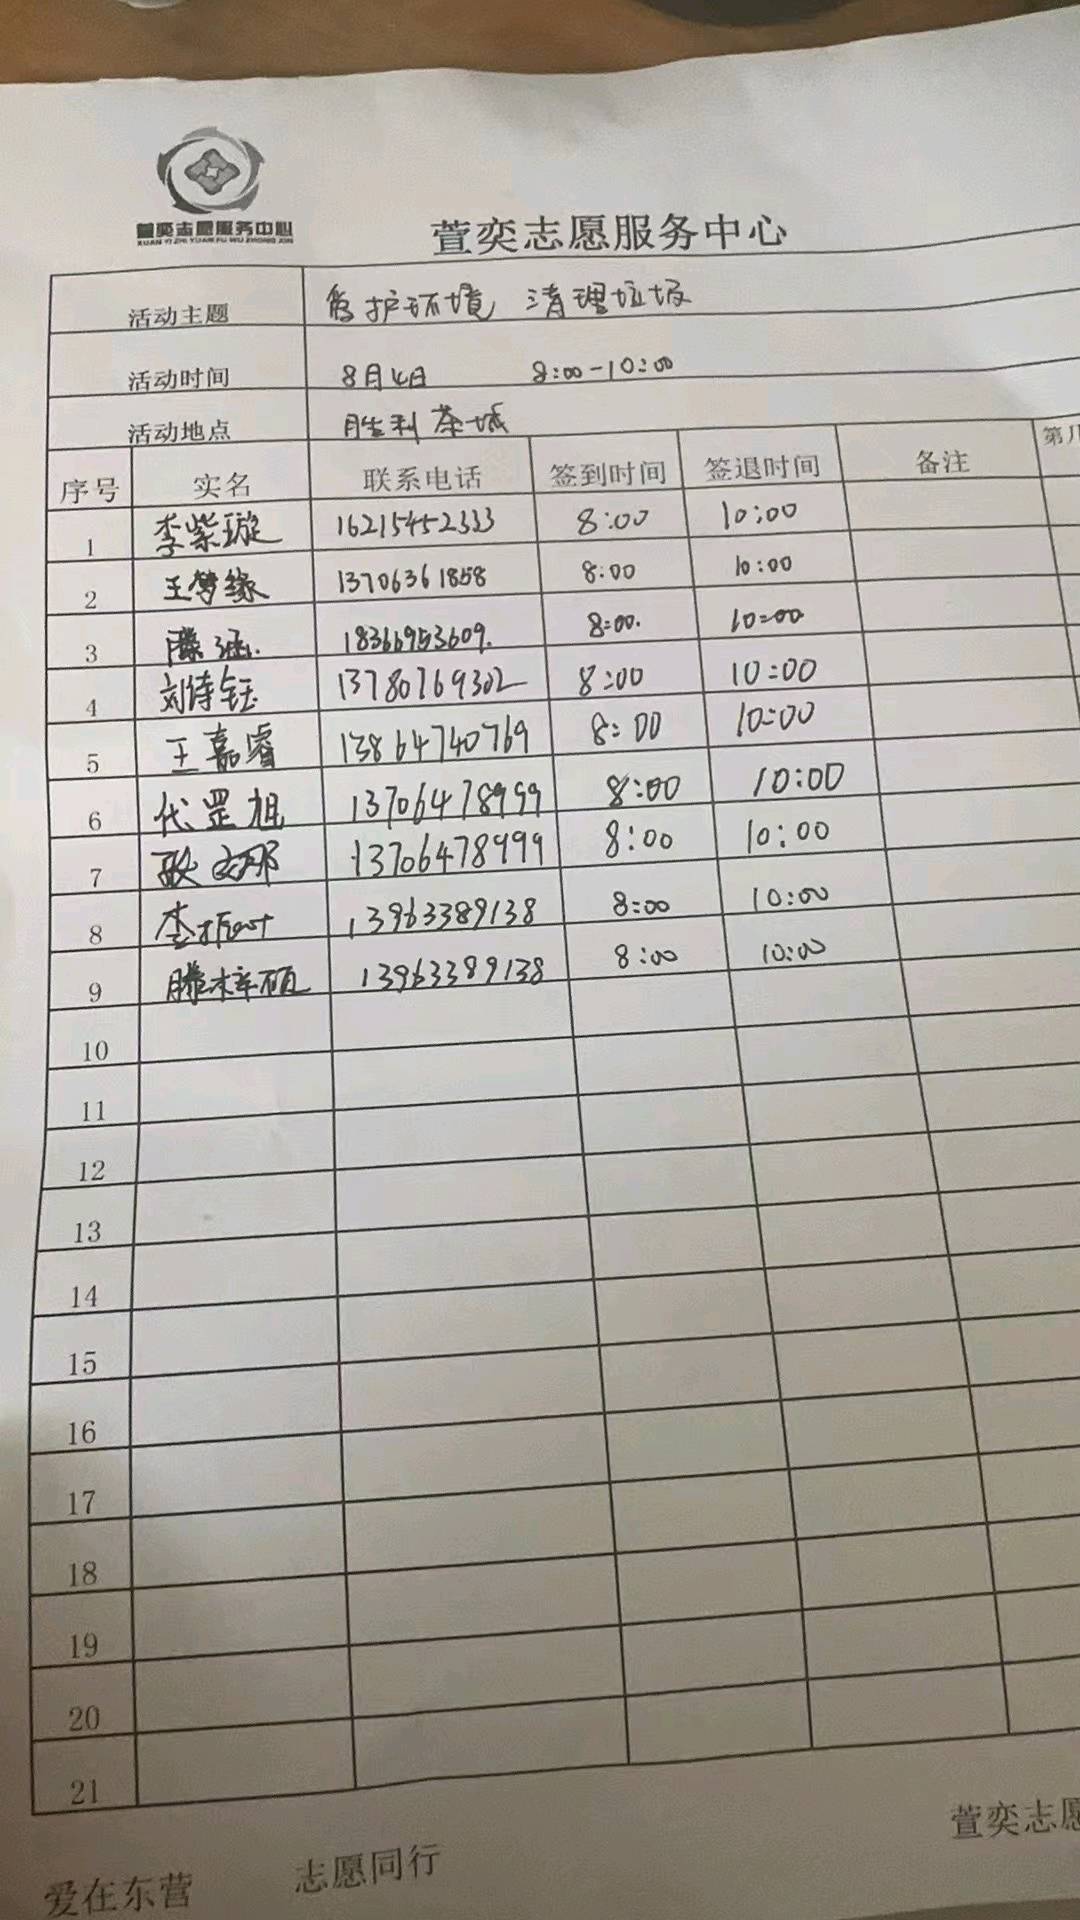 萱奕志愿服务中心
XUAN YI ZHI YUAN FU WU ZHONG XIN
萱奕志愿服务中心
活动主题 爱护环境 清理垃圾
活动时间 8月4日 8:00-10:00
活动地点 胜利茶城
序号 实名 联系电话 签到时间 签退时间 备注 第几
1 李紫璇 16215452333 8:00 10:00
2 王梦缘 13706361858 8:00 10:00
3 滕涵 18366953609 8:00 10:00
4 刘诗钰 13780769302 8:00 10:00
5 王嘉睿 13864740769 8:00 10:00
6 代罡旭 13706478999 8:00 10:00
7 耿文娜 13706478999 8:00 10:00
8 李 13963389138 8:00 10:00
9 滕梓硕 13963389138 8:00 10:00
10
11
12
13
14
15
16
17
18
19
20
21
萱奕志愿
爱在东营 志愿同行